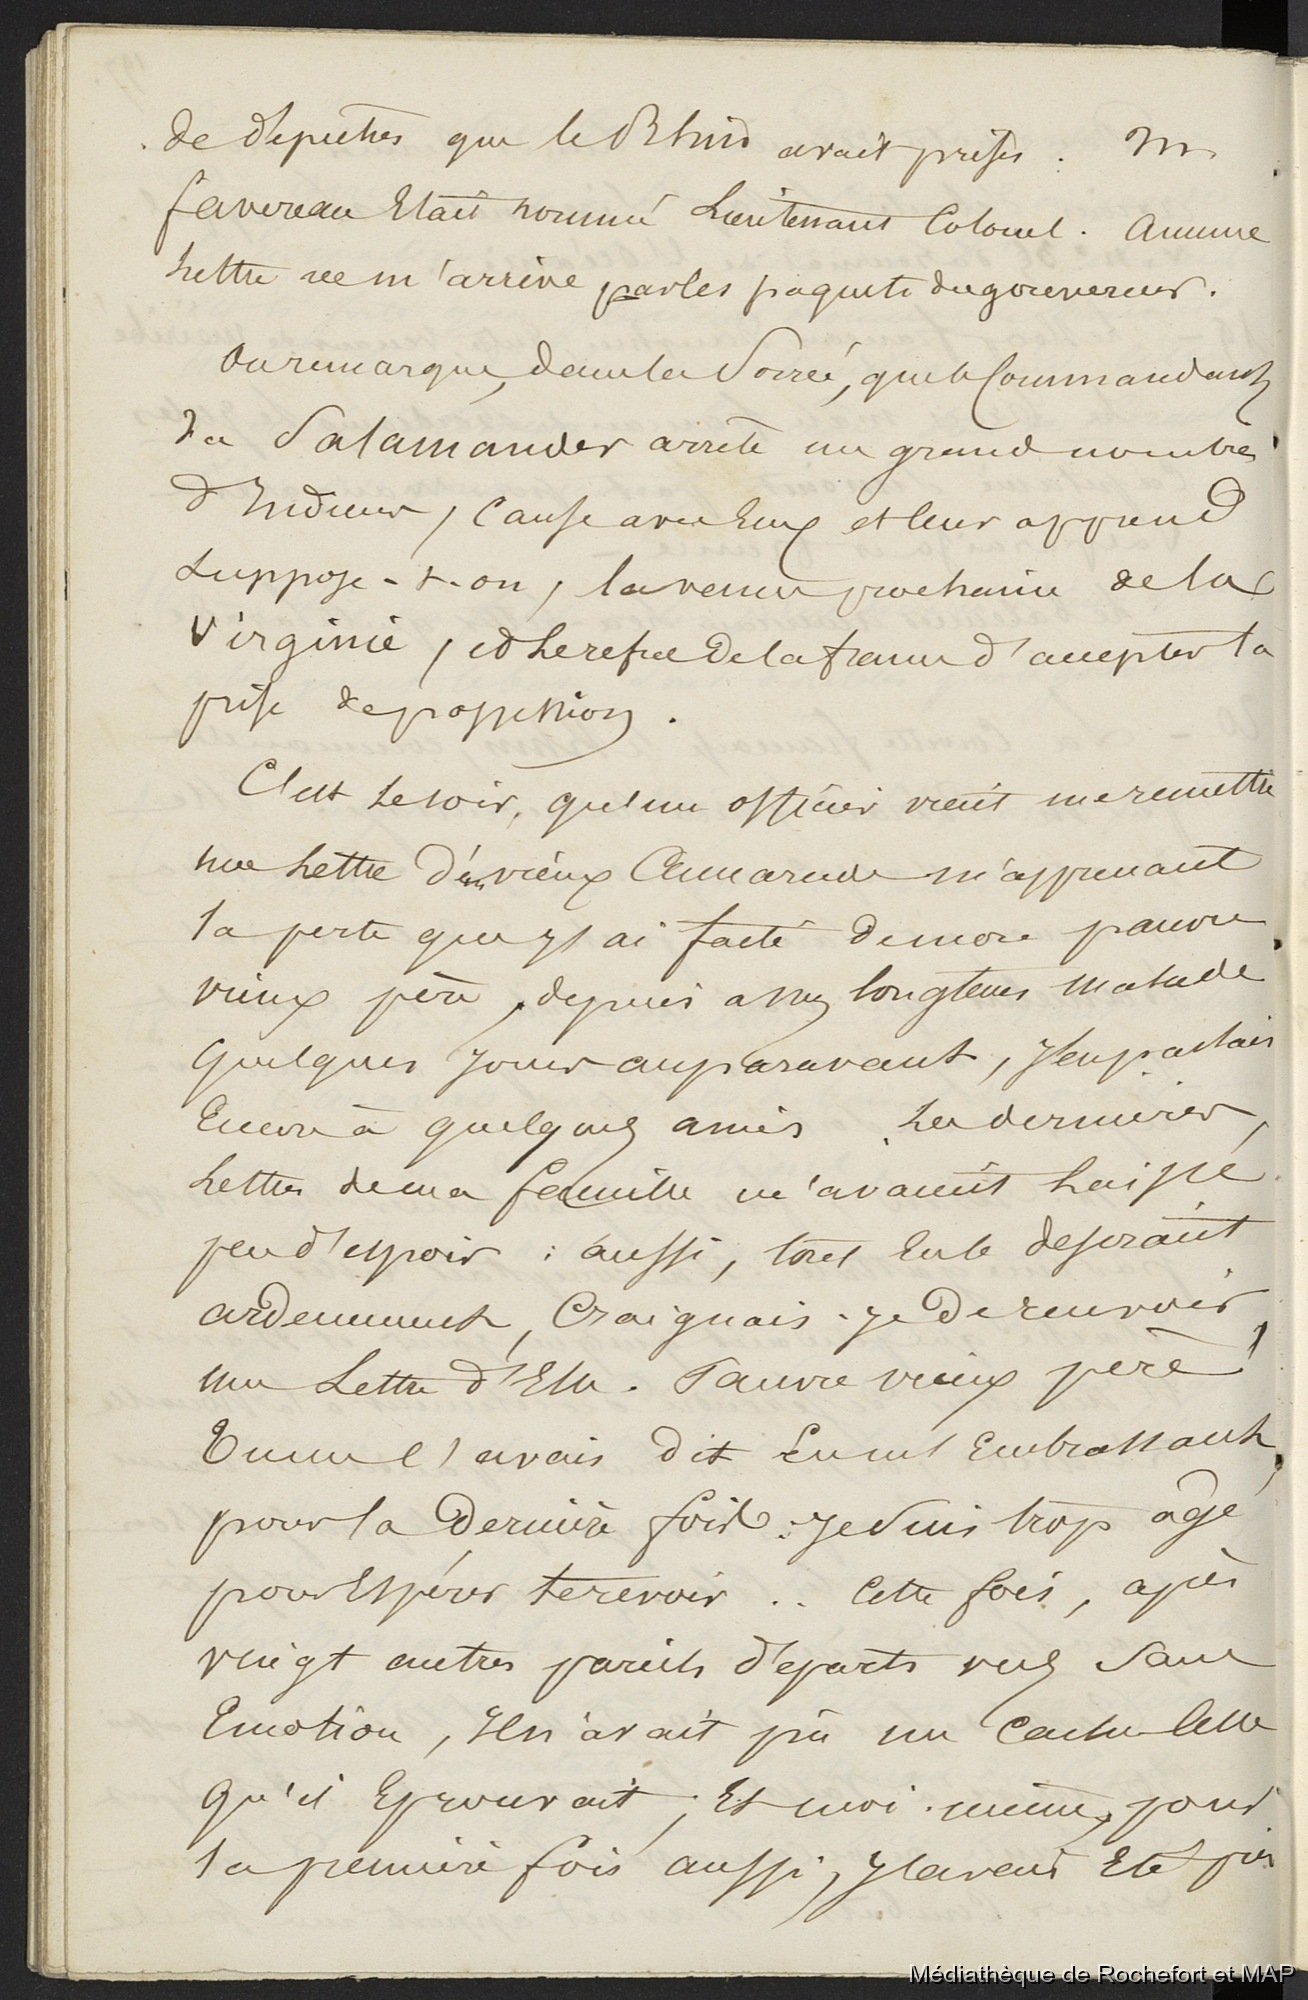 de dépêches que le Rhin avait prises. Mr
favereau Etait nommé Lieutenant Colonel. Aucune
Lettre ne m'arrive par les paquets du gouverneur.
On remarque, dans la Soirée, que le Commandant
du Salamander arrête un grand nombre
d'Indiens, Cause avec Eux et leur apprend
Suppose-t-on, la venue prochaine de la
Virginie, et le refus de la france d'accepter la
prise de possession.
C'est le soir, qu'un officier vient me remettre
une Lettre d'un vieux Camarade m'apprenant
la perte que j'ai faite de mon pauvre
vieux père, depuis assez longtems malade
quelques jours auparavant, j'en parlais
Encore à quelques amis Les dernières,
Lettres de ma famille m'avaient Laissé
peu d'espoir : aussi, tout En le désirant
ardemment, Craignais-je de recevoir
une Lettre d'Elle. Pauvre vieux père !
Tu me l'avais dit En m'Embrassant,
pour la Dernière fois : je suis trop âgé
pour Espérer te revoir .. Cette fois, après
vingt autres pareils départs vus Sans
Emotion, Il n'avait pu me cacher Celle
qu'il Eprouvait ; Et moi-même, pour
la première fois aussi, j'avais Eté pris
Médiathèque de Rochefort et MAP